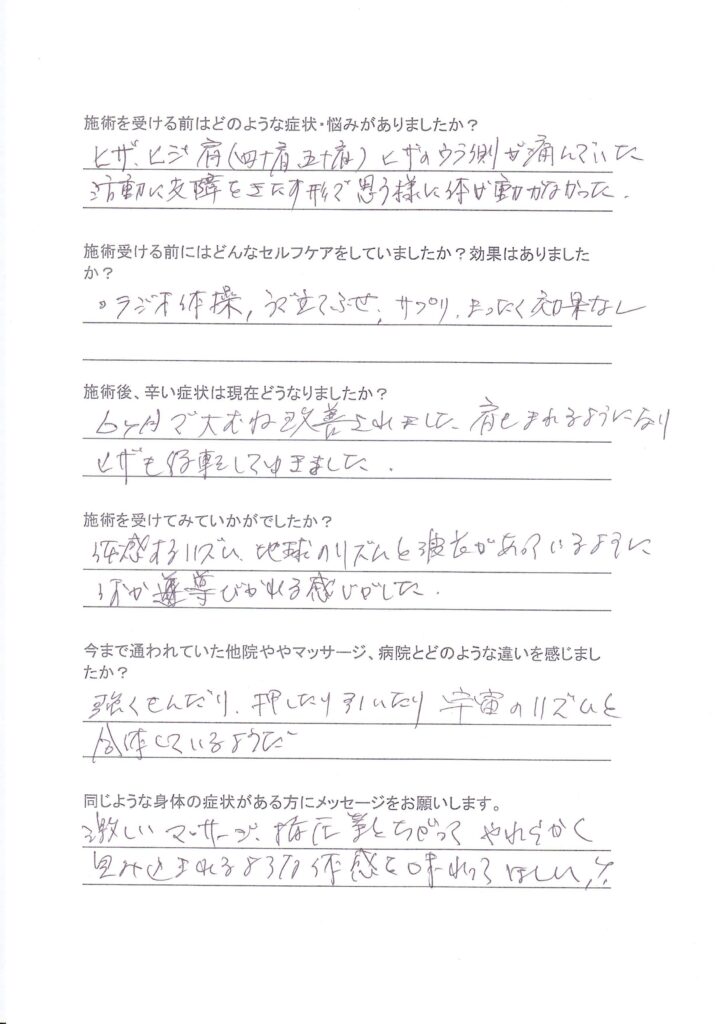 施術を受ける前はどのような症状・悩みがありましたか？
ヒザ、ヒジ 肩(四十肩、五十肩) ヒザのウラ側が痛んでいた
活動に支障をきたす形で思う様に体が動かなかった.
施術受ける前にはどんなセルフケアをしていましたか？効果はありました
か？
ラジオ体操, うで立てふせ, サプリ. まったく効果なし
施術後、辛い症状は現在どうなりましたか？
6ヶ月で大むね改善されました. 肩もまわるようになり
ヒザも好転してゆきました.
施術を受けてみていかがでしたか？
体感するリズム、地球のリズムと波長があっているように
体が導びかれる感じがした.
今まで通われていた他院ややマッサージ、病院とどのような違いを感じまし
たか？
強くもんだり、押したり引いたり 宇宙のリズムと
合体しているようだ
同じような身体の症状がある方にメッセージをお願いします。
激しいマッサージ、指圧等とちがって やわらかく
包み込まれるような体感を味わってほしい